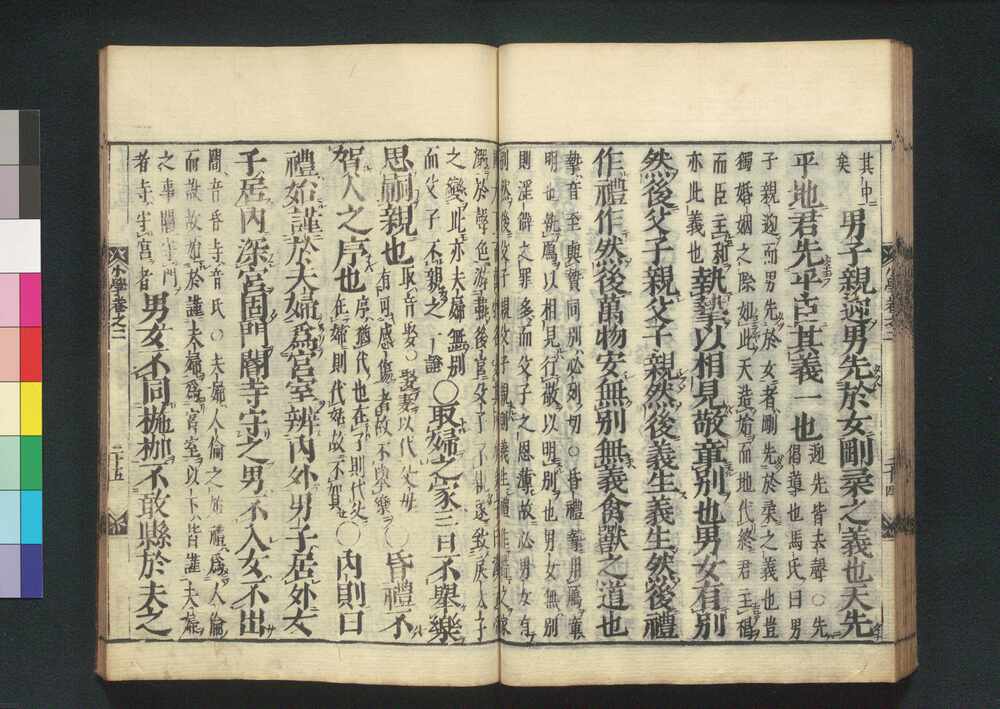 其中
矣
男子親迎男先於女剛柔之義也天先
乎地君先乎臣其義一也
迎先皆去聲○先
倡導也馬氏曰男
子親迎而男先於女者剛先於柔之義也豈
獨婚姻之際如此天造始而地代終君主倡
而臣主和
亦此義也
執摯以相見敬章別也男女有別
然後父子親父子親然後義生義生然後禮
作禮作然後萬物安無別無義禽獸之道也
摯音至與贄同別必列切○昏禮摯用鴈章
明也執鴈以相見行敬以明別也男女無別
則淫僻之罪多而父子之恩薄故必男女有
小學卷之二
二十四
溺於聲色游後宮父子遂致戾太子
之變此亦夫婦無別
而父子不親之一證
○取婦之家三日不舉樂
思嗣親也
取音娶○娶妻以代父母
有可感傷者故不舉樂
○昏禮不
賀人之序也
序猶代也在子則代父
在婦則代姑故不賀
○內則曰
禮始謹於夫婦爲宮室辨內外男子居外女
子居內深宮固門閽寺守之男不入女不出
閽音昏寺音○夫婦人倫之始禮爲人倫
而設故始於謹夫婦爲宮室以下皆謹夫婦
之事閽守門
者寺掌宮者
男女不同椸枷不敢縣於夫之
小學卷之二
二十五